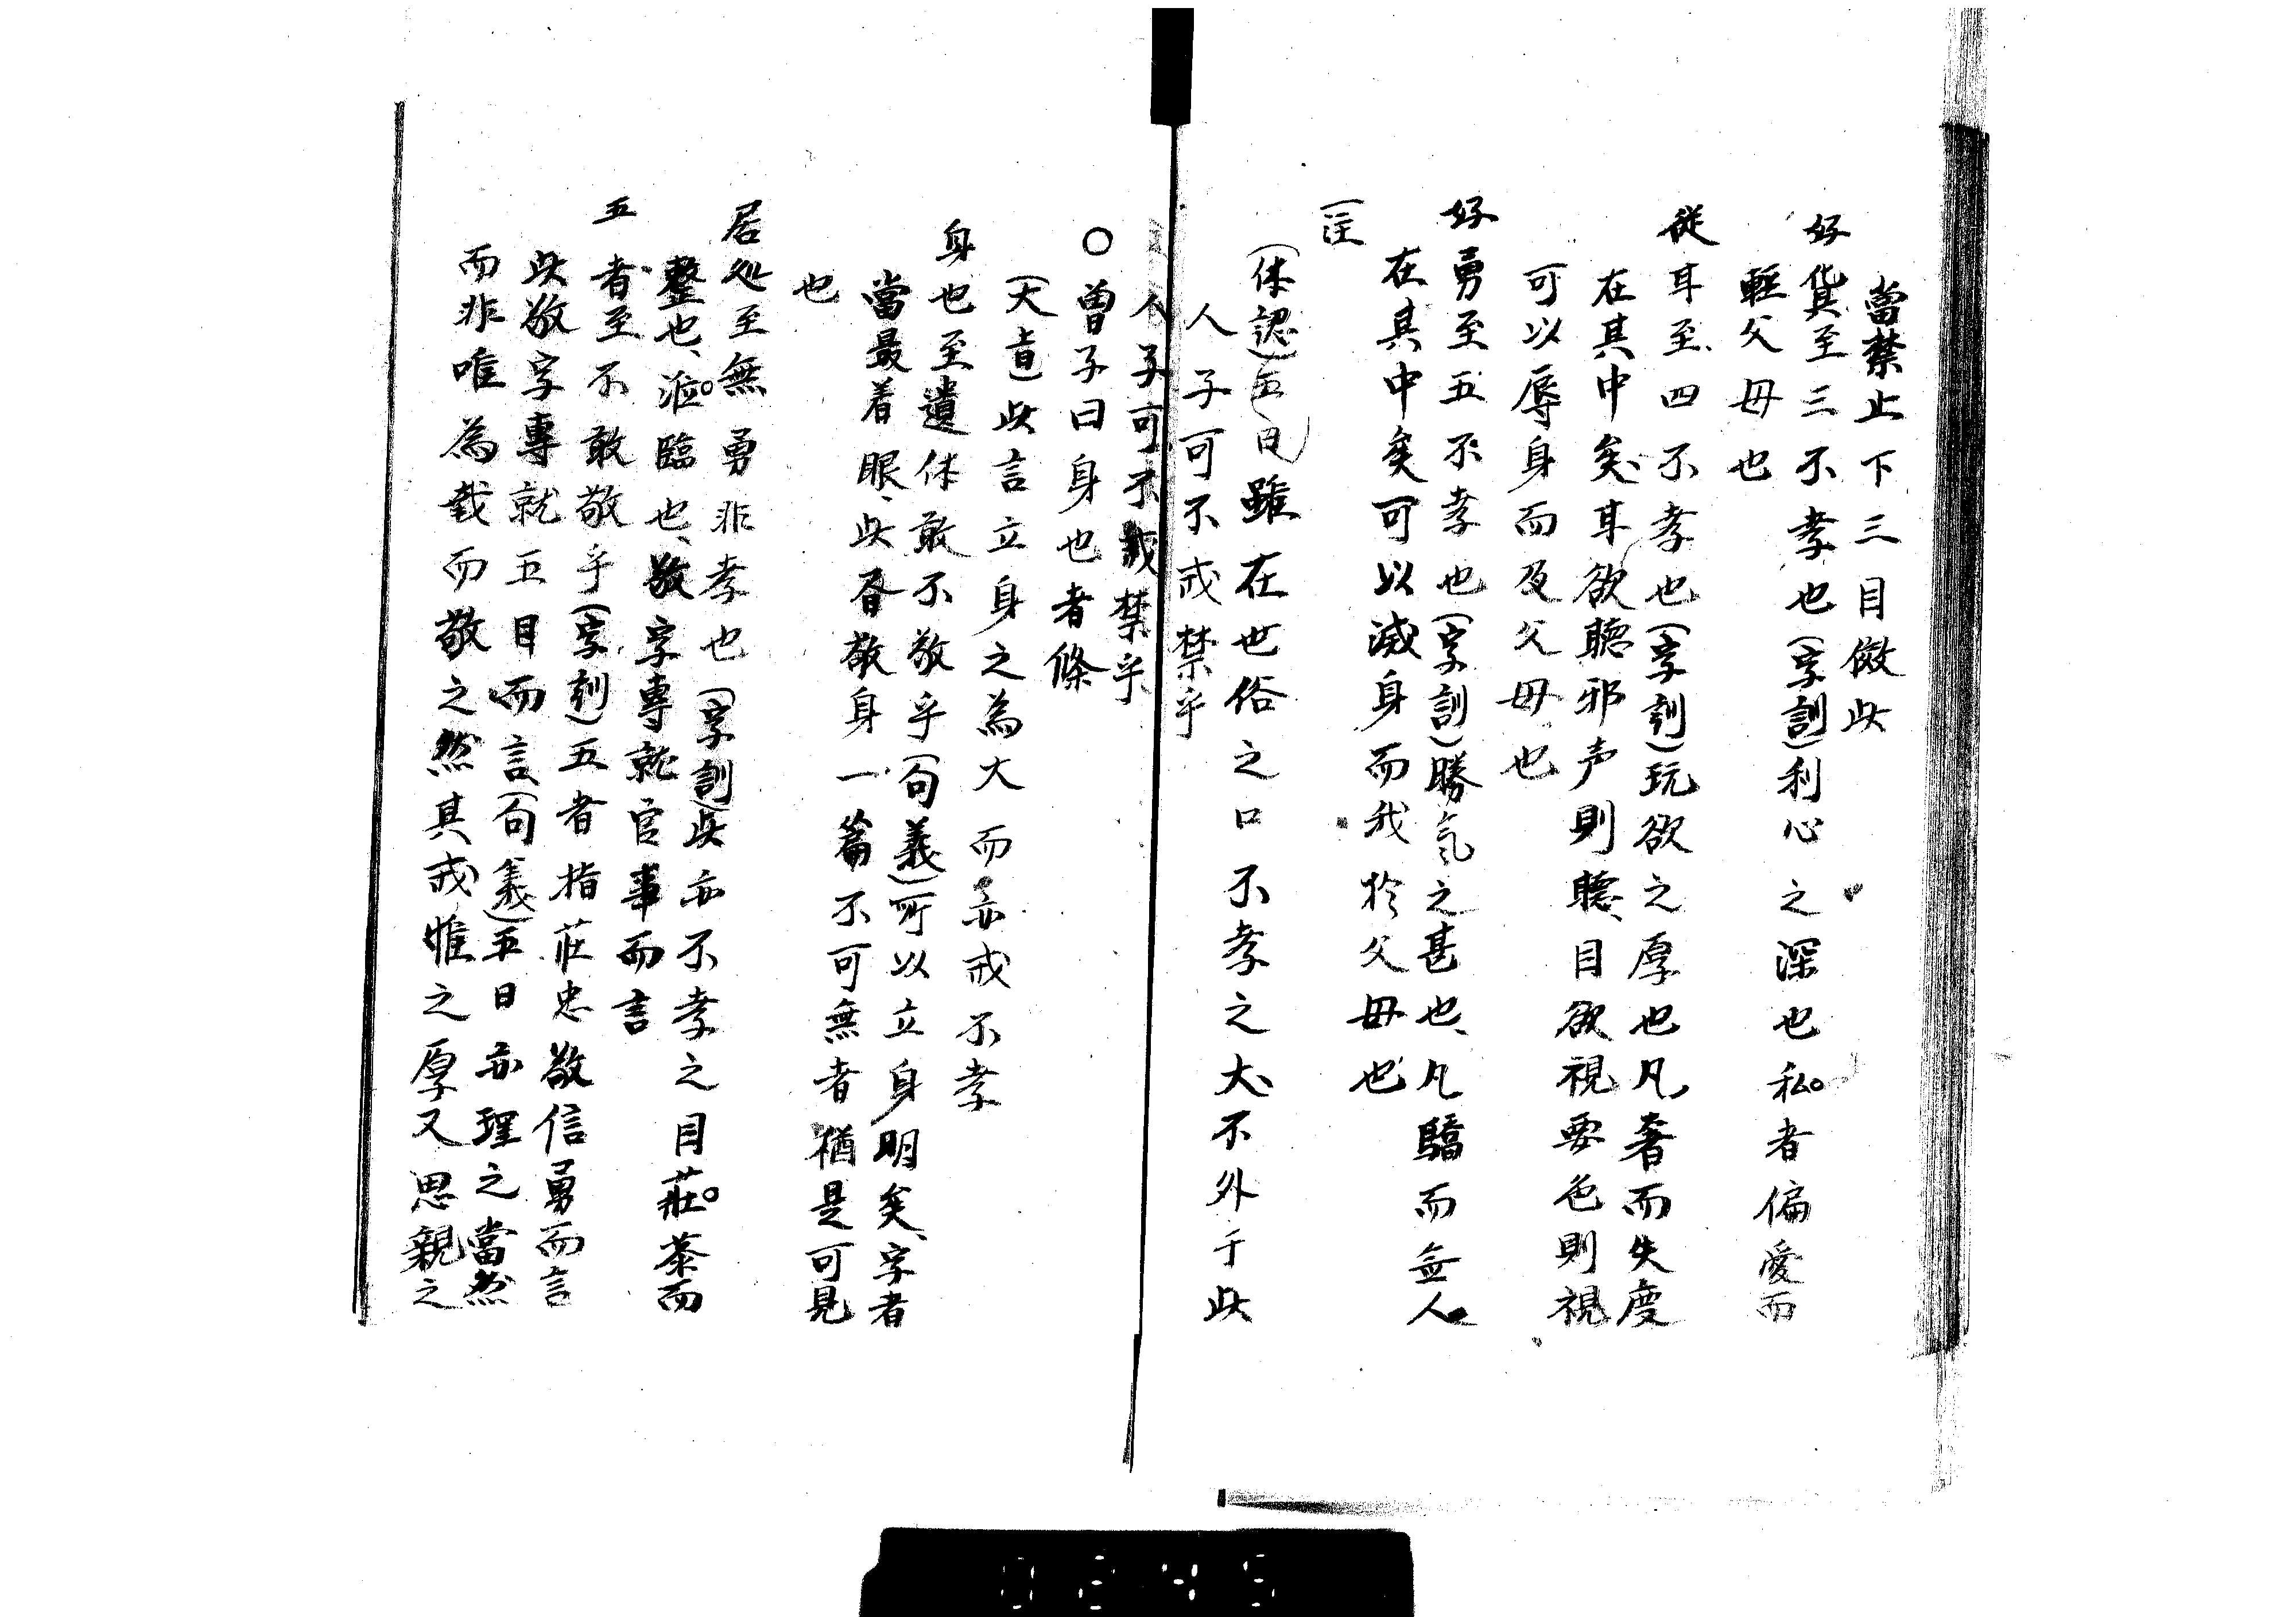 當禁止下三目倣此
好貨至三不孝也(字訓)利心之深也私者偏愛而
輕父母也
從耳至四不孝也(字訓)玩欲之厚也凡奢而失度
在其中矣耳欲聽邪声則聽目欲視要色則視
可以辱身而及父母也
好勇至五不孝也(字訓)勝気之甚也凡驕而無人
在其中矣可以滅身而我於父母也
(註
(体認)五目雖在世俗之口不孝之大不外于此
人子可不戒禁乎
人子可不戒禁乎
○曽子曰身也者條
(大旨)此言立身之為大而亦戒不孝
身也至遺体敢不敬乎(句義)所以立身明矣字者
當最着眼此昏敬身一篇不可無者猶是可見
也
居処至無勇非孝也(字訓)此亦不孝之目莊恭而
整也涖臨也敬字專就官事而言
五者至不敢敬乎(字訓)五者指莊忠敬信勇而言
此敬字專就五目而言(句義)五日亦理之當然
而非唯為烖而敬之然其戒惟之厚又思親之